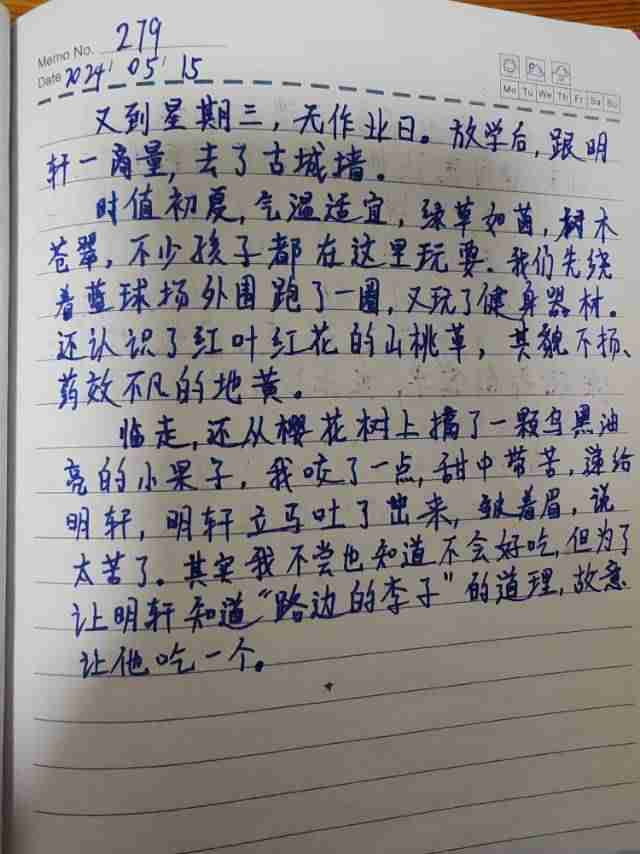 Memo No. 279
Date 2024 05 15
Mo Tu We Th Fr Sa Su
又到星期三，无作业日。放学后，跟明
轩一商量，去了古城墙。
时值初夏，气温适宜，绿草如茵，树木
苍翠，不少孩子都在这里玩耍。我们先绕
着蓝球场外围跑了一圈，又玩了健身器材。
还认识了红叶红花的山桃草，其貌不扬、
药效不凡的地黄。
临走，还从樱花树上摘了一颗乌黑油
亮的小果子，我咬了一点，甜中带苦，递给
明轩，明轩立马吐了出来，皱着眉，说
太苦了。其实我不尝也知道不会好吃，但为了
让明轩知道“路边的李子”的道理，故意
让他吃一个。